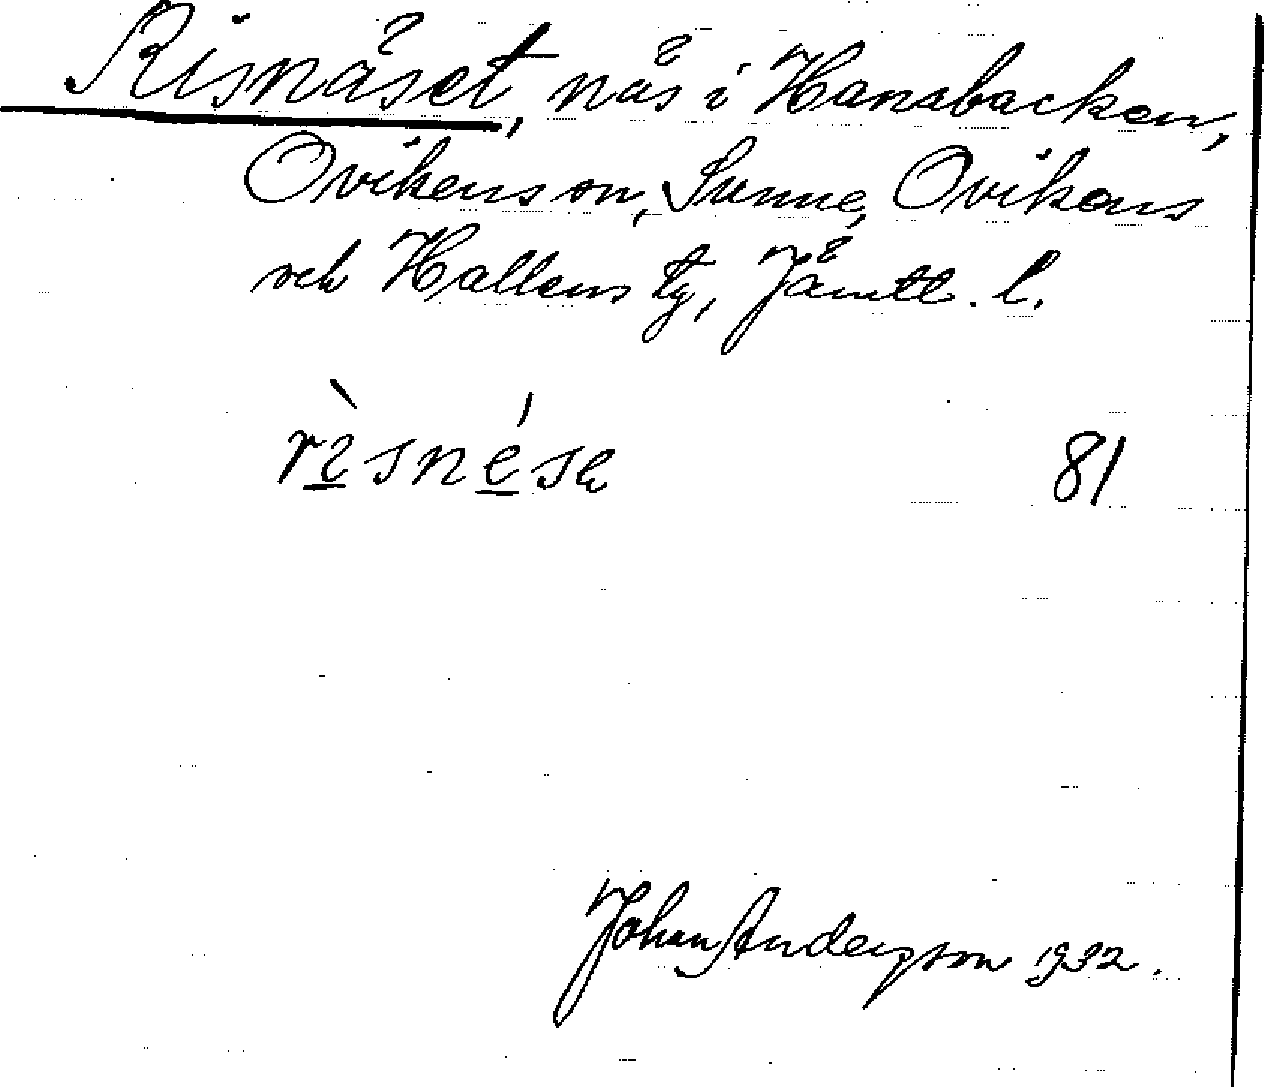 Risnäset, näs i Hansbacken,
Ovikens sn, Sunne, Ovikens
och Hallens tg, Jämtl. l.
rɩ̀snésɐ 81
Johan Anderzon 1932.